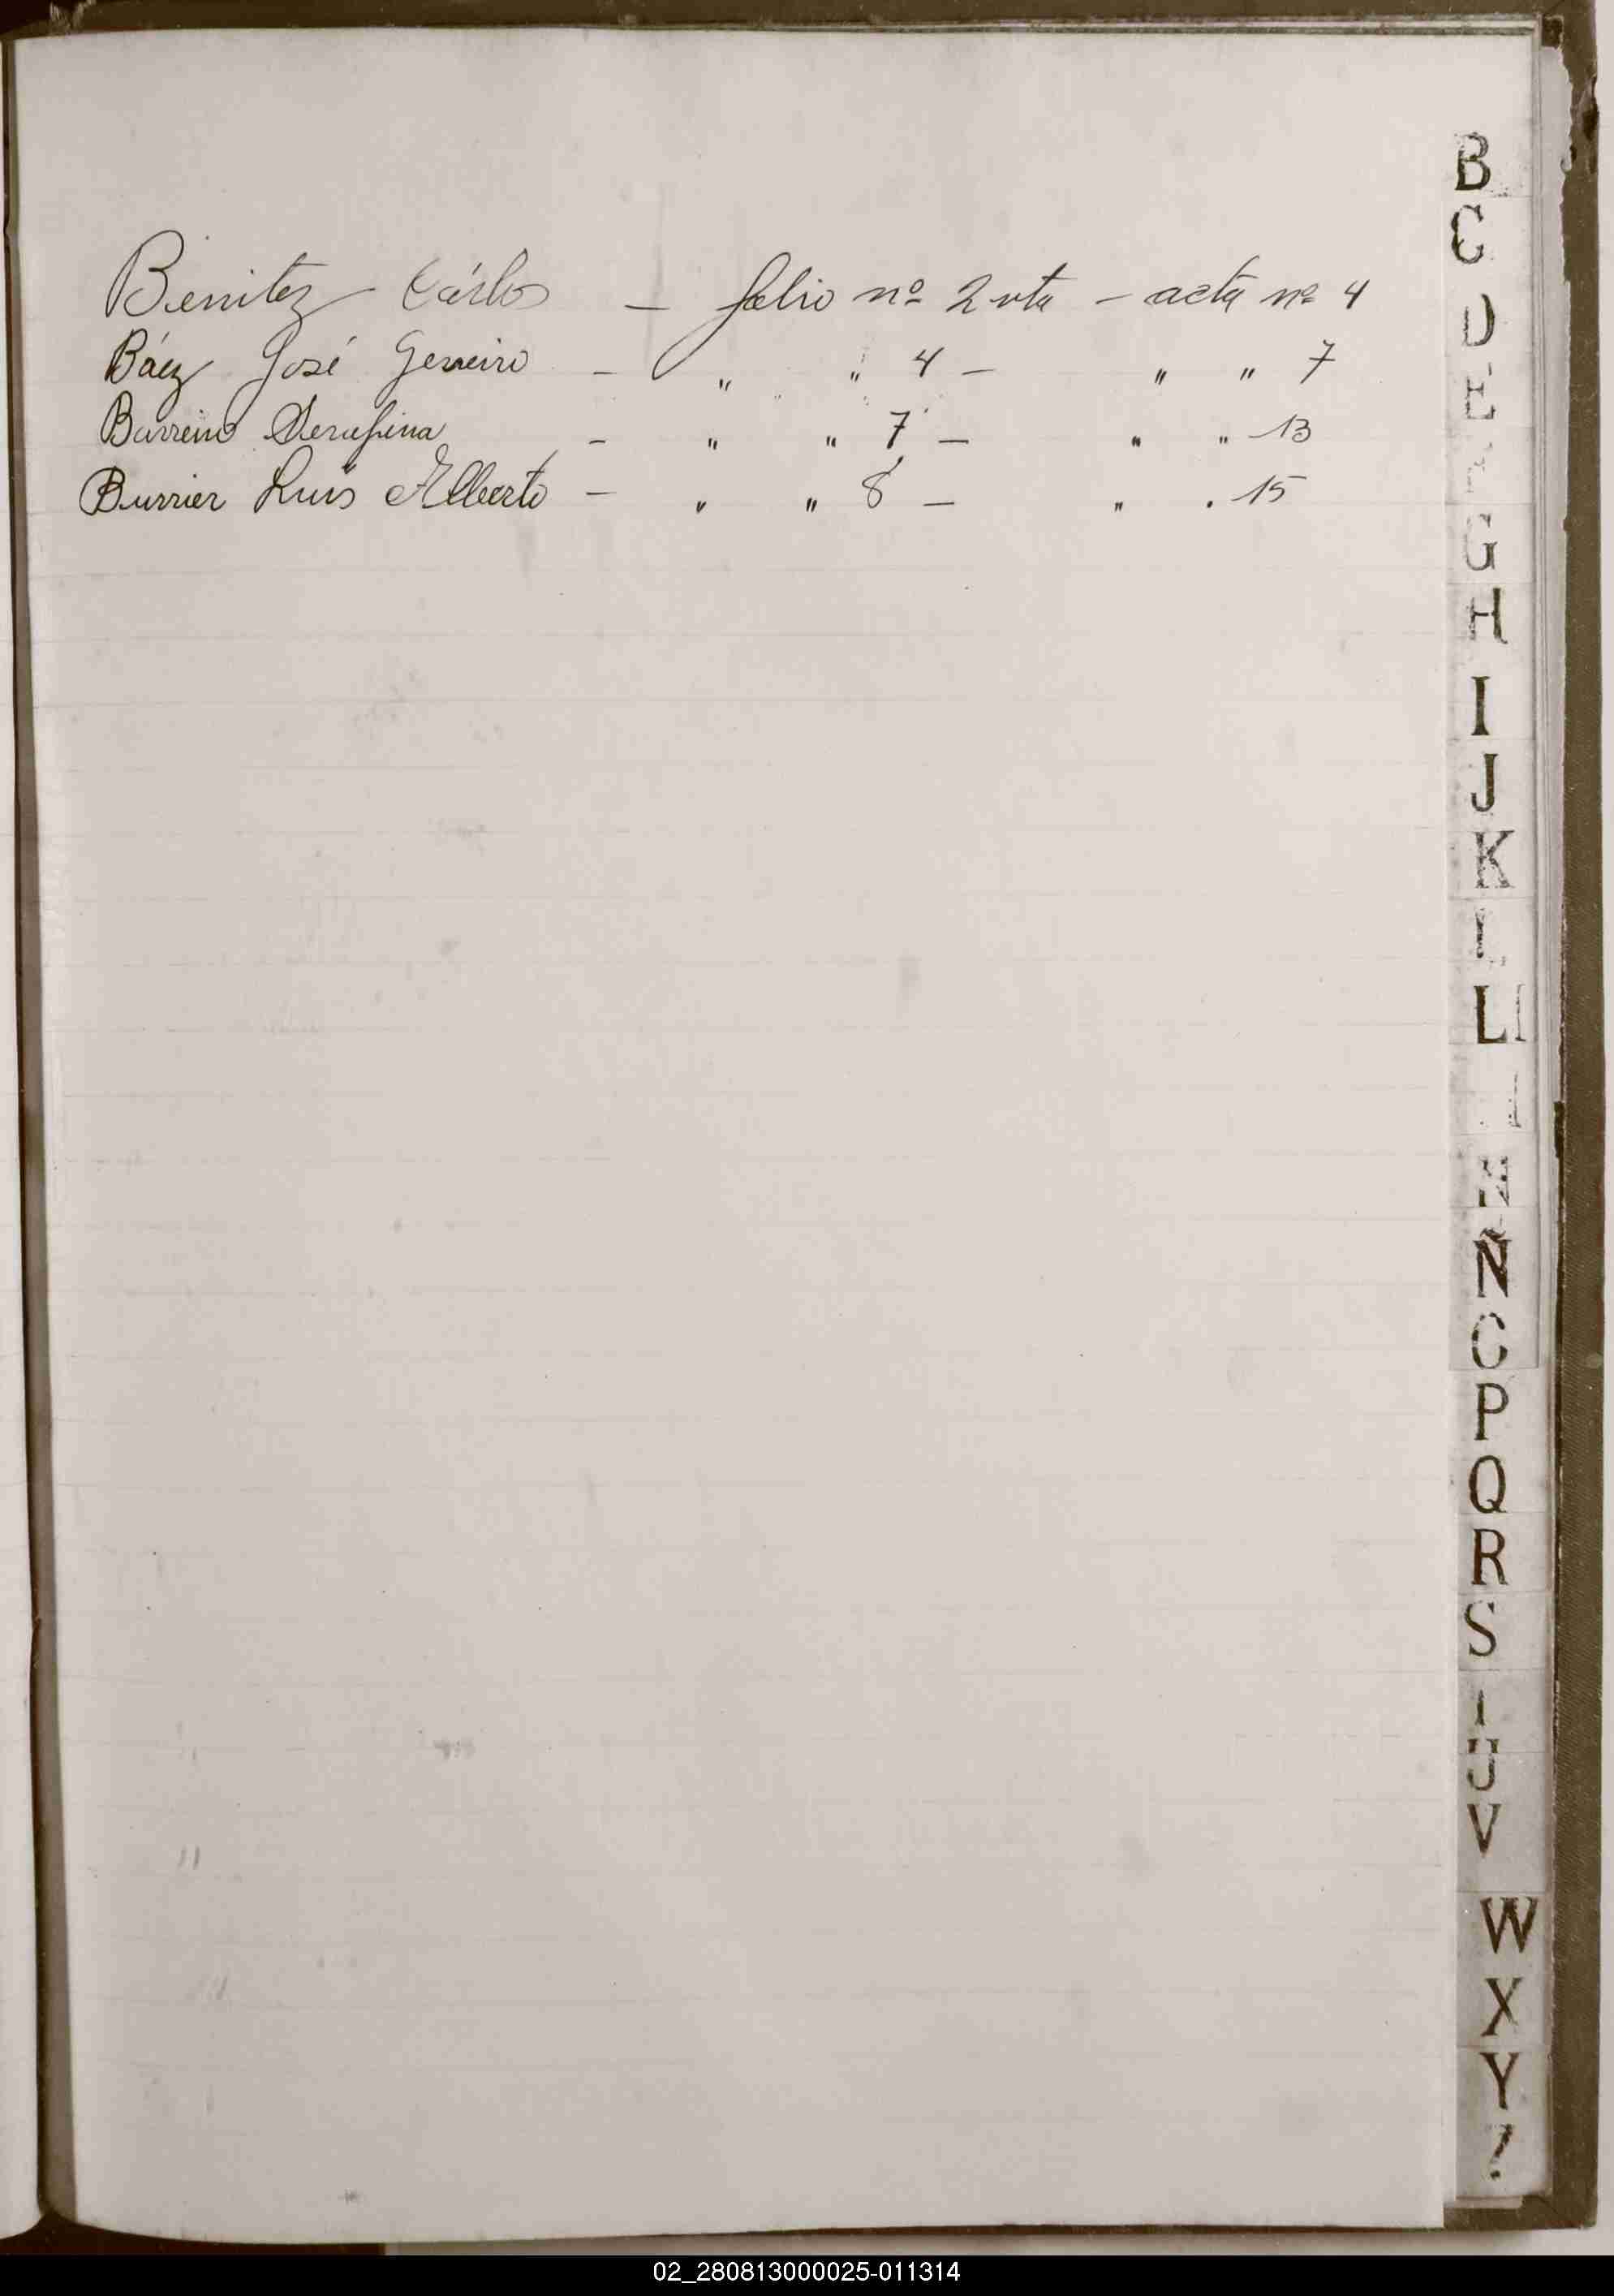 Benitez Cárlos — folio nº 2 vta — acta nº 4
Báez José — " " 4 — " " 7
Barreiro Serafina — " " 7 — " " 13
Burrier Luis Alberto — " " 8 — " " 15
B
C
D
E
G
H
I
J
K
L
Ll
N
O
P
Q
R
S
U
V
W
X
Y
02_280813000025-011314